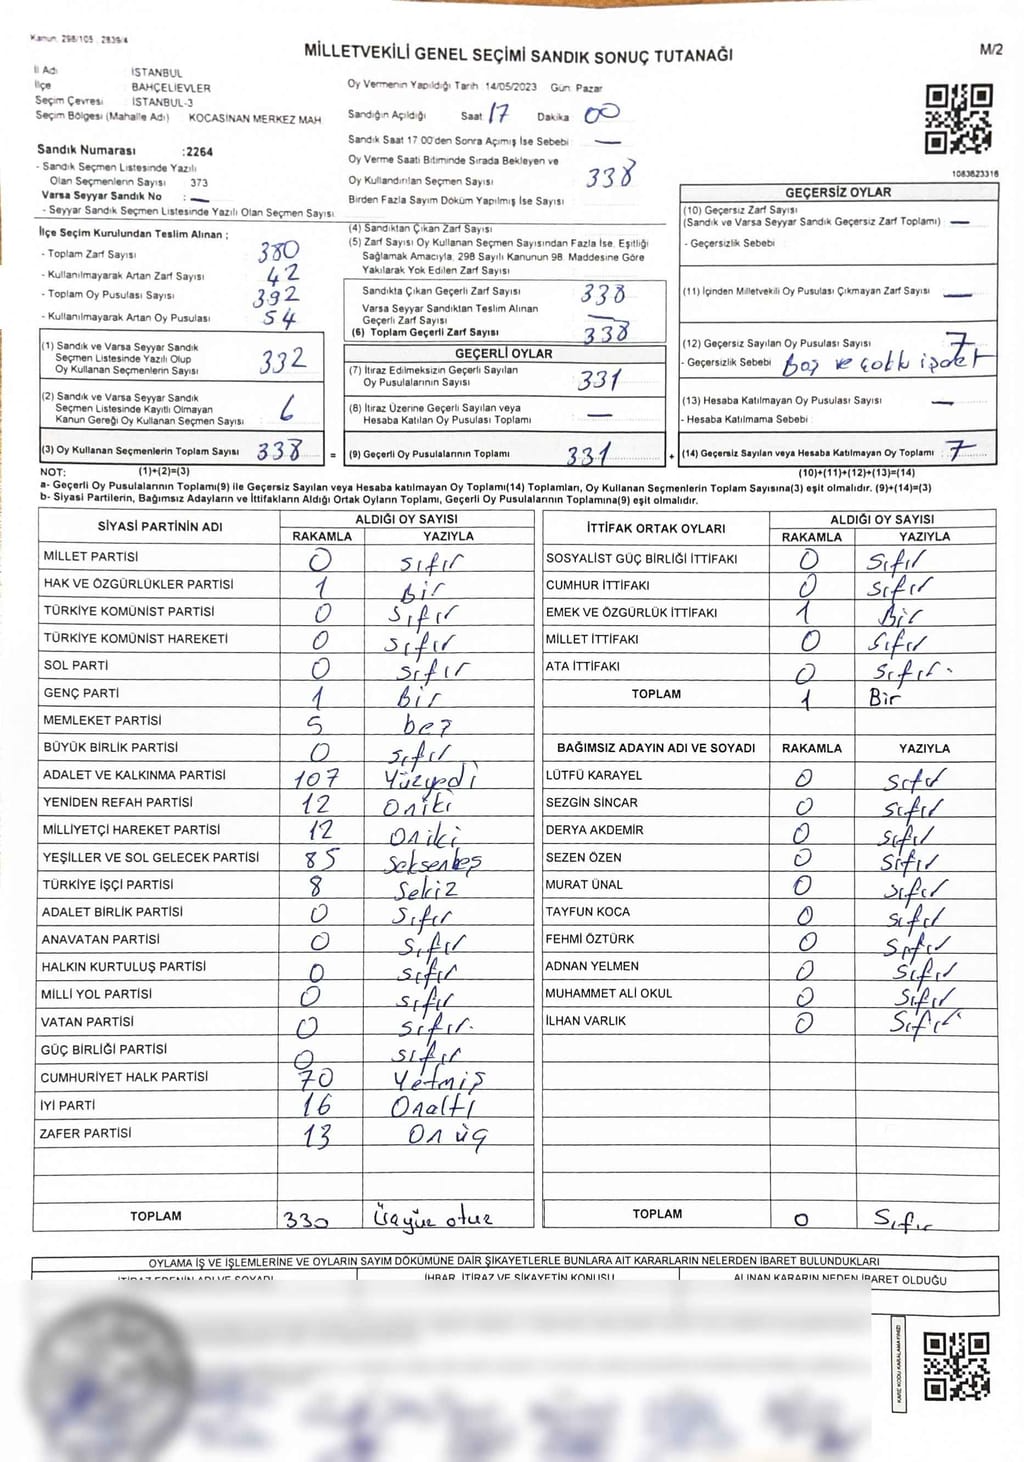 Kanun: 298/105 : 2839/4
MİLLETVEKİLİ GENEL SEÇİMİ SANDIK SONUÇ TUTANAĞI
M/2
İl Adı İSTANBUL
İlçe BAHÇELİEVLER
Seçim Çevresi İSTANBUL-3
Seçim Bölgesi (Mahalle Adı) KOCASİNAN MERKEZ MAH
Sandık Numarası :2264
- Sandık Seçmen Listesinde Yazılı
Olan Seçmenlerin Sayısı 373
Varsa Seyyar Sandık No : —
- Seyyar Sandık Seçmen Listesinde Yazılı Olan Seçmen Sayısı
Oy Vermenin Yapıldığı Tarih 14/05/2023 Gün: Pazar
Sandığın Açıldığı Saat 17 Dakika 00
Sandık Saat 17:00'den Sonra Açımış İse Sebebi —
Oy Verme Saati Bitiminde Sırada Bekleyen ve
Oy Kullandırılan Seçmen Sayısı 338
Birden Fazla Sayım Döküm Yapılmış İse Sayısı
1083623316
İlçe Seçim Kurulundan Teslim Alınan ;
- Toplam Zarf Sayısı 380
- Kullanılmayarak Artan Zarf Sayısı 42
- Toplam Oy Pusulası Sayısı 392
- Kullanılmayarak Artan Oy Pusulası 54
(1) Sandık ve Varsa Seyyar Sandık
Seçmen Listesinde Yazılı Olup
Oy Kullanan Seçmenlerin Sayısı 332
(2) Sandık ve Varsa Seyyar Sandık
Seçmen Listesinde Kayıtlı Olmayan
Kanun Gereği Oy Kullanan Seçmen Sayısı 6
(3) Oy Kullanan Seçmenlerin Toplam Sayısı 338 =
(4) Sandıktan Çıkan Zarf Sayısı
(5) Zarf Sayısı Oy Kullanan Seçmen Sayısından Fazla İse, Eşitliği
Sağlamak Amacıyla, 298 Sayılı Kanunun 98. Maddesine Göre
Yakılarak Yok Edilen Zarf Sayısı
Sandıkta Çıkan Geçerli Zarf Sayısı 338
Varsa Seyyar Sandıktan Teslim Alınan
Geçerli Zarf Sayısı —
(6) Toplam Geçerli Zarf Sayısı 338
GEÇERLİ OYLAR
(7) İtiraz Edilmeksizin Geçerli Sayılan
Oy Pusulalarının Sayısı 331
(8) İtiraz Üzerine Geçerli Sayılan veya
Hesaba Katılan Oy Pusulası Toplamı —
(9) Geçerli Oy Pusulalarının Toplamı 331 +
GEÇERSİZ OYLAR
(10) Geçersiz Zarf Sayısı
(Sandık ve Varsa Seyyar Sandık Geçersiz Zarf Toplamı) —
- Geçersizlik Sebebi
(11) İçinden Milletvekili Oy Pusulası Çıkmayan Zarf Sayısı —
(12) Geçersiz Sayılan Oy Pusulası Sayısı 7
- Geçersizlik Sebebi Boş ve çoklu işaret
(13) Hesaba Katılmayan Oy Pusulası Sayısı —
- Hesaba Katılmama Sebebi
(14) Geçersiz Sayılan veya Hesaba Katılmayan Oy Toplamı 7
NOT: (1)+(2)=(3) (10)+(11)+(12)+(13)=(14)
a- Geçerli Oy Pusulalarının Toplamı(9) ile Geçersiz Sayılan veya Hesaba katılmayan Oy Toplamı(14) Toplamları, Oy Kullanan Seçmenlerin Toplam Sayısına(3) eşit olmalıdır. (9)+(14)=(3)
b- Siyasi Partilerin, Bağımsız Adayların ve İttifakların Aldığı Ortak Oyların Toplamı, Geçerli Oy Pusulalarının Toplamına(9) eşit olmalıdır.
SİYASİ PARTİNİN ADI ALDIĞI OY SAYISI
RAKAMLA YAZIYLA
MİLLET PARTİSİ 0 Sıfır
HAK VE ÖZGÜRLÜKLER PARTİSİ 1 Bir
TÜRKİYE KOMÜNİST PARTİSİ 0 Sıfır
TÜRKİYE KOMÜNİST HAREKETİ 0 Sıfır
SOL PARTİ 0 Sıfır
GENÇ PARTİ 1 Bir
MEMLEKET PARTİSİ 5 beş
BÜYÜK BİRLİK PARTİSİ 0 Sıfır
ADALET VE KALKINMA PARTİSİ 107 Yüzyedi
YENİDEN REFAH PARTİSİ 12 Oniki
MİLLİYETÇİ HAREKET PARTİSİ 12 Oniki
YEŞİLLER VE SOL GELECEK PARTİSİ 85 Seksenbeş
TÜRKİYE İŞÇİ PARTİSİ 8 Sekiz
ADALET BİRLİK PARTİSİ 0 Sıfır
ANAVATAN PARTİSİ 0 Sıfır
HALKIN KURTULUŞ PARTİSİ 0 Sıfır
MİLLİ YOL PARTİSİ 0 Sıfır
VATAN PARTİSİ 0 Sıfır
GÜÇ BİRLİĞİ PARTİSİ 0 Sıfır
CUMHURİYET HALK PARTİSİ 70 Yetmiş
İYİ PARTİ 16 Onaltı
ZAFER PARTİSİ 13 On üç
TOPLAM 330 Üçyüz otuz
İTTİFAK ORTAK OYLARI ALDIĞI OY SAYISI
RAKAMLA YAZIYLA
SOSYALİST GÜÇ BİRLİĞİ İTTİFAKI 0 Sıfır
CUMHUR İTTİFAKI 0 Sıfır
EMEK VE ÖZGÜRLÜK İTTİFAKI 1 Bir
MİLLET İTTİFAKI 0 Sıfır
ATA İTTİFAKI 0 Sıfır
TOPLAM 1 Bir
BAĞIMSIZ ADAYIN ADI VE SOYADI RAKAMLA YAZIYLA
LÜTFÜ KARAYEL 0 Sıfır
SEZGİN SİNCAR 0 Sıfır
DERYA AKDEMİR 0 Sıfır
SEZEN ÖZEN 0 Sıfır
MURAT ÜNAL 0 Sıfır
TAYFUN KOCA 0 Sıfır
FEHMİ ÖZTÜRK 0 Sıfır
ADNAN YELMEN 0 Sıfır
MUHAMMET ALİ OKUL 0 Sıfır
İLHAN VARLIK 0 Sıfır
TOPLAM 0 Sıfır
OYLAMA İŞ VE İŞLEMLERİNE VE OYLARIN SAYIM DÖKÜMÜNE DAİR ŞİKAYETLERLE BUNLARA AİT KARARLARIN NELERDEN İBARET BULUNDUKLARI
İTİRAZ EDENİN ADI VE SOYADI İHBAR, İTİRAZ VE ŞİKAYETİN KONUSU ALINAN KARARIN NEDEN İBARET OLDUĞU
KARE KODU KARALAMAYINIZ!